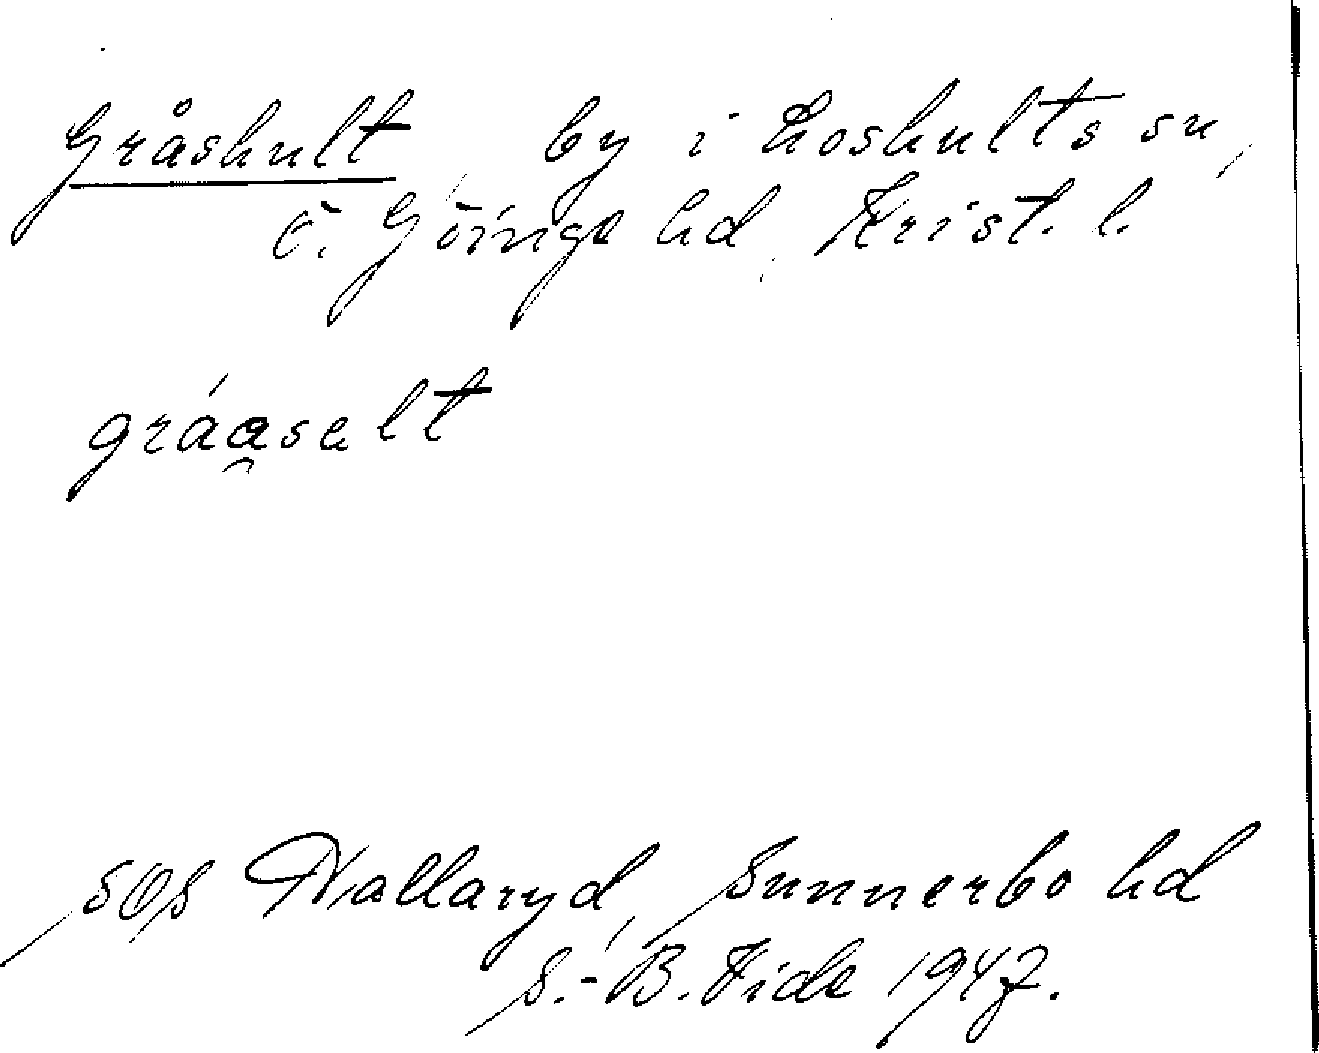 Gråshult by i Loshults sn,
Ö. Göinge hd, Krist. l.
gráa̯selt
SOS Hallaryd, Sunnerbo hd
S.-B. Vide 1947.